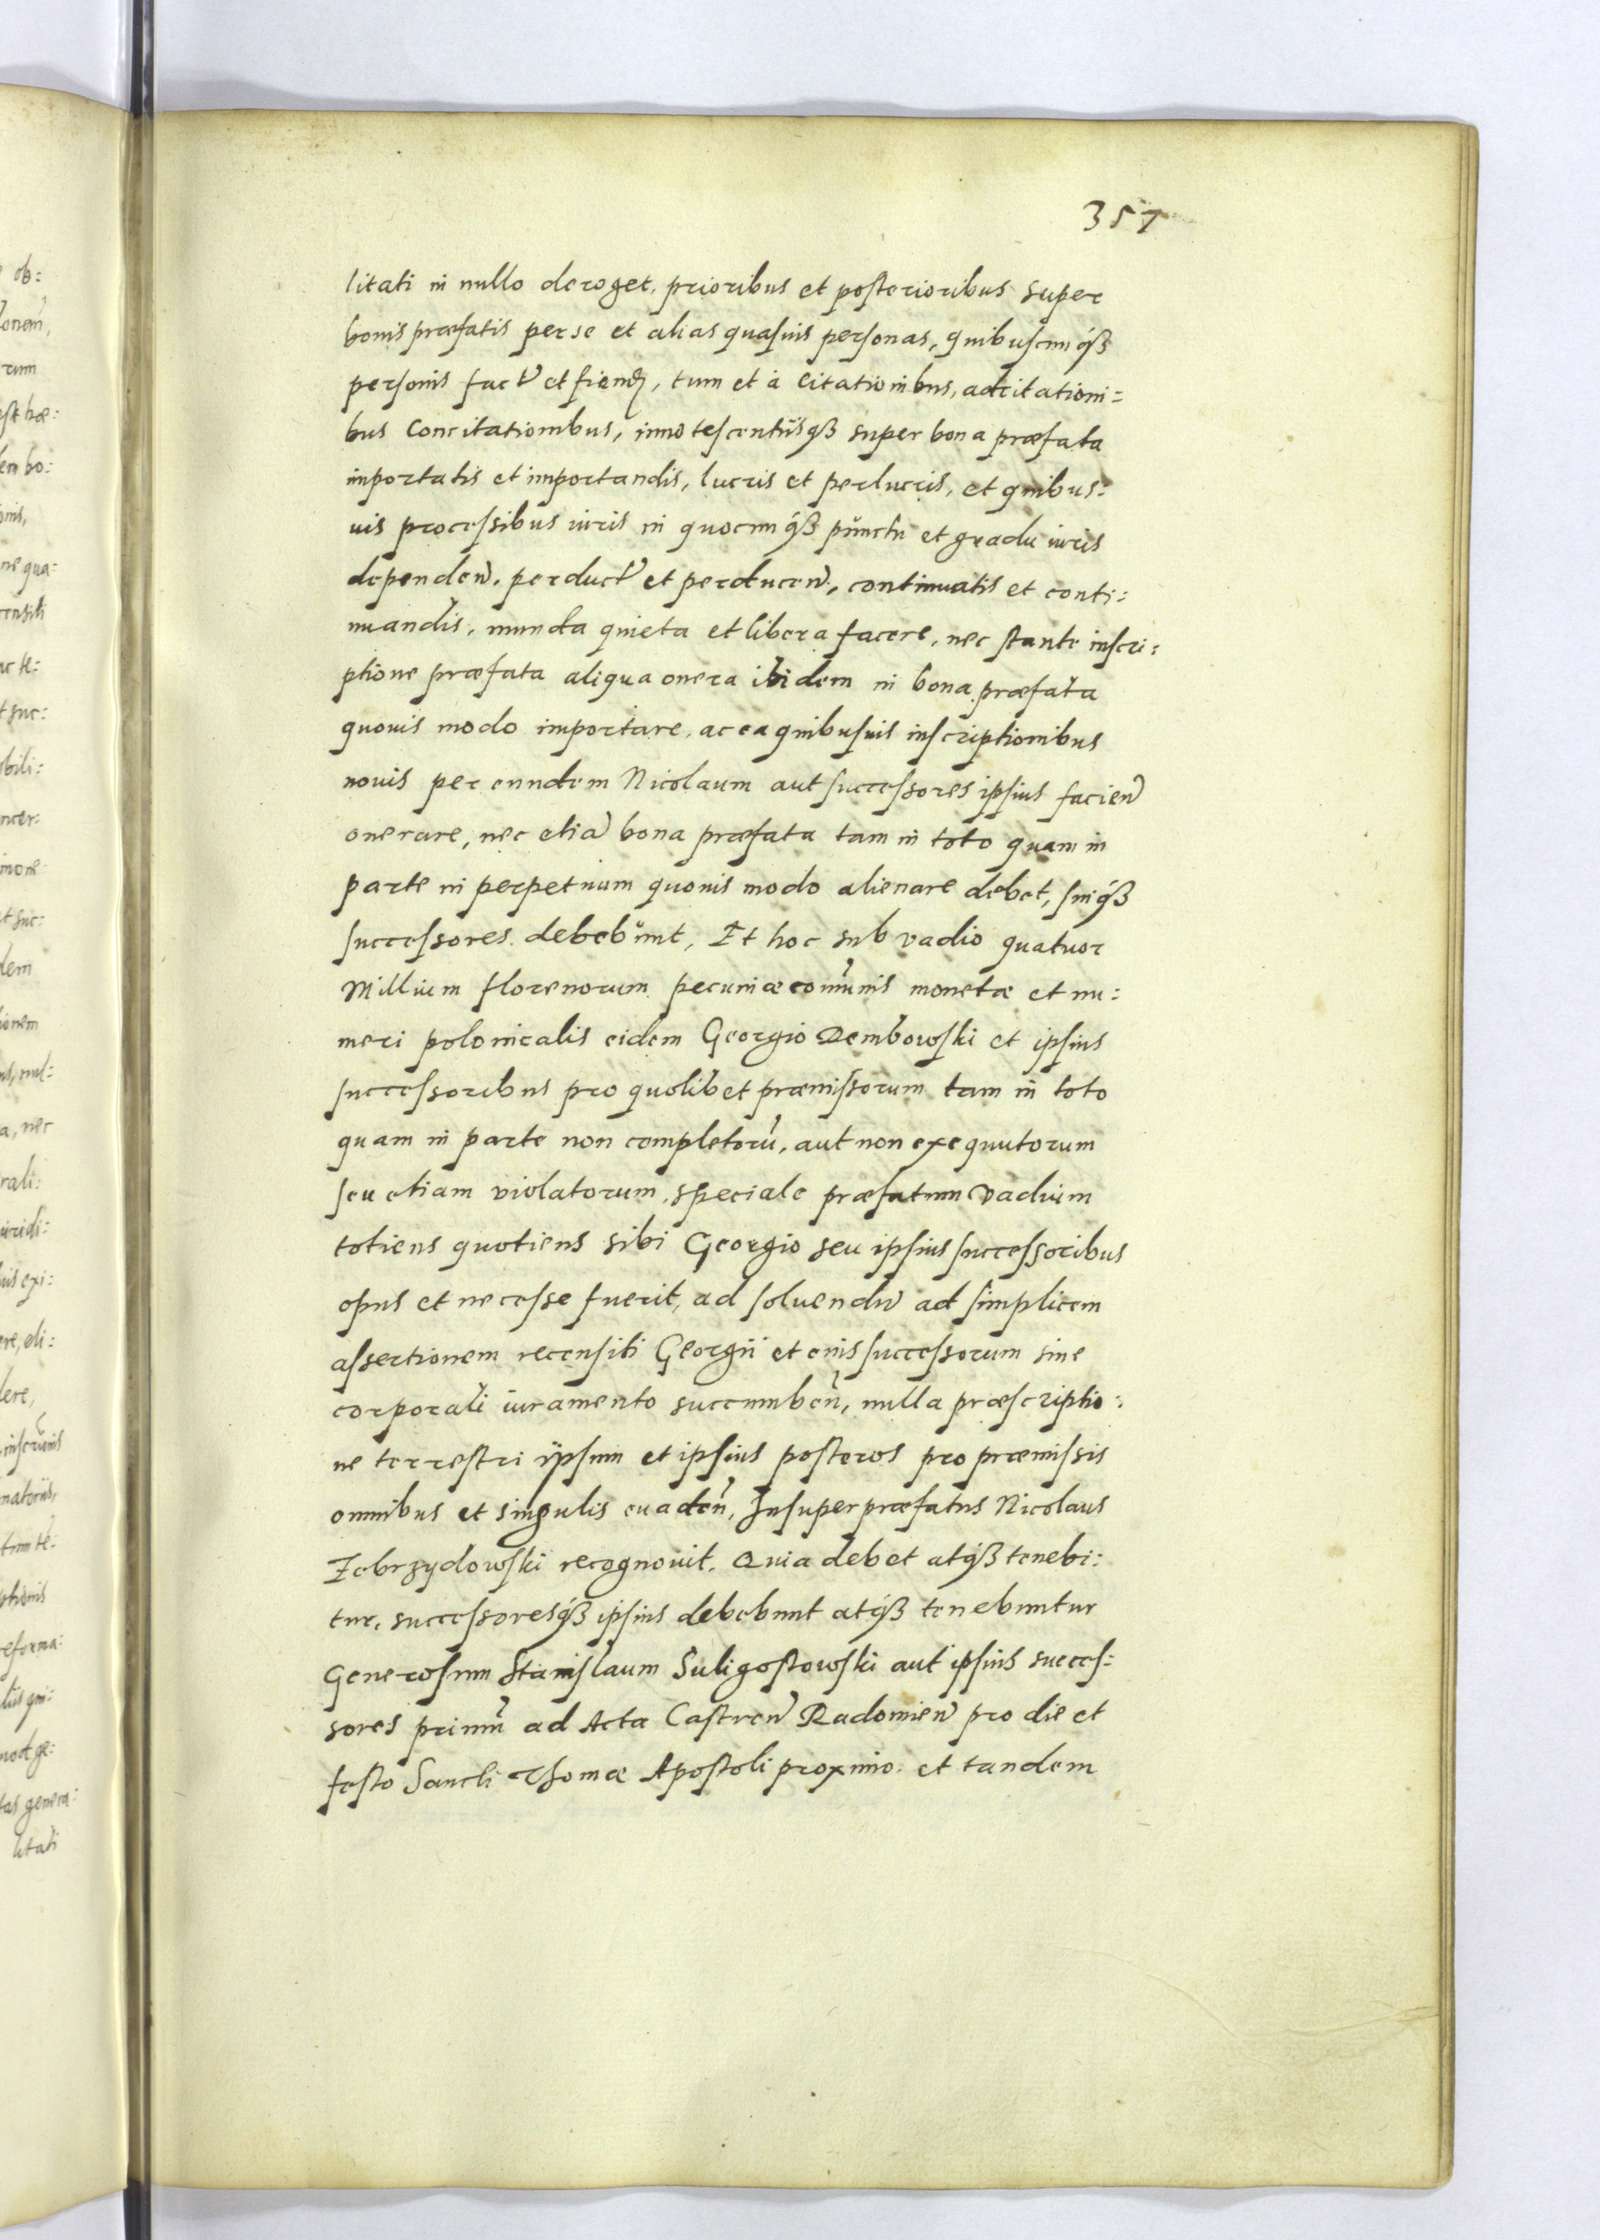 357
litati in nullo deroget, prioribus et posterioribus super
bonis præfatis per se et alias quasuis personas, quibuscunq́ꝫ
personis fact̃ et fiend̃, tum et à citationibus, adcitationi:
bus Concitationibus, innotescentiisq́ꝫ super bona præfata
importatis et importandis, lucris et perlucris, et quibus:
uis processibus iuris in quocunq́ꝫ punctu et gradu iuris
dependeñ. perduct̃ et perduceñ, continuatis et conti:
nuandis, munda quieta et libera facere, nec stante inscri:
ptione præfata aliqua onera ibidem in bona præfata
quouis modo importare, ac ea quibusuis inscriptionibus
nouis per eundem Nicolaum aut successores ipsius facieñ
onerare, nec etiã bona præfata tam in toto quam in
parte in perpetuum quouis modo alienare debet, suiq́ꝫ
successores debebunt, Et hoc sub vadio quatuor
Millium florenorum pecuniæ com̃unis monetæ et nu:
meri polonicalis eidem Georgio Dembowski et ipsius
successoribus pro quolibet præmissorum tam in toto
quam in parte non completorũ, aut non exequutorum
seu etiam violatorum, speciale præfatum vadium
totiens quotiens sibi Georgio seu ipsius successoribus
opus et necesse fuerit, ad soluendũ ad simplicem
assertionem recensiti Georgii et eius successorum sine
corporali iuramento succumbeñ, nulla præscriptio:
ne terrestri ipsum et ipsius posteros pro præmissis
omnibus et singulis euadeñ, Insuper præfatus Nicolaus
Zebrzydowski recognouit. Quia debet atq́ꝫ tenebi:
tur, successoresq́ꝫ ipsius debebunt atq́ꝫ tenebuntur
Generosum Stanislaum Suligostowski aut ipsius succes:
sores primũ ad Acta Castreñ Radomieñ pro die et
festo Sancti Thomæ Apostoli proximo et tandem